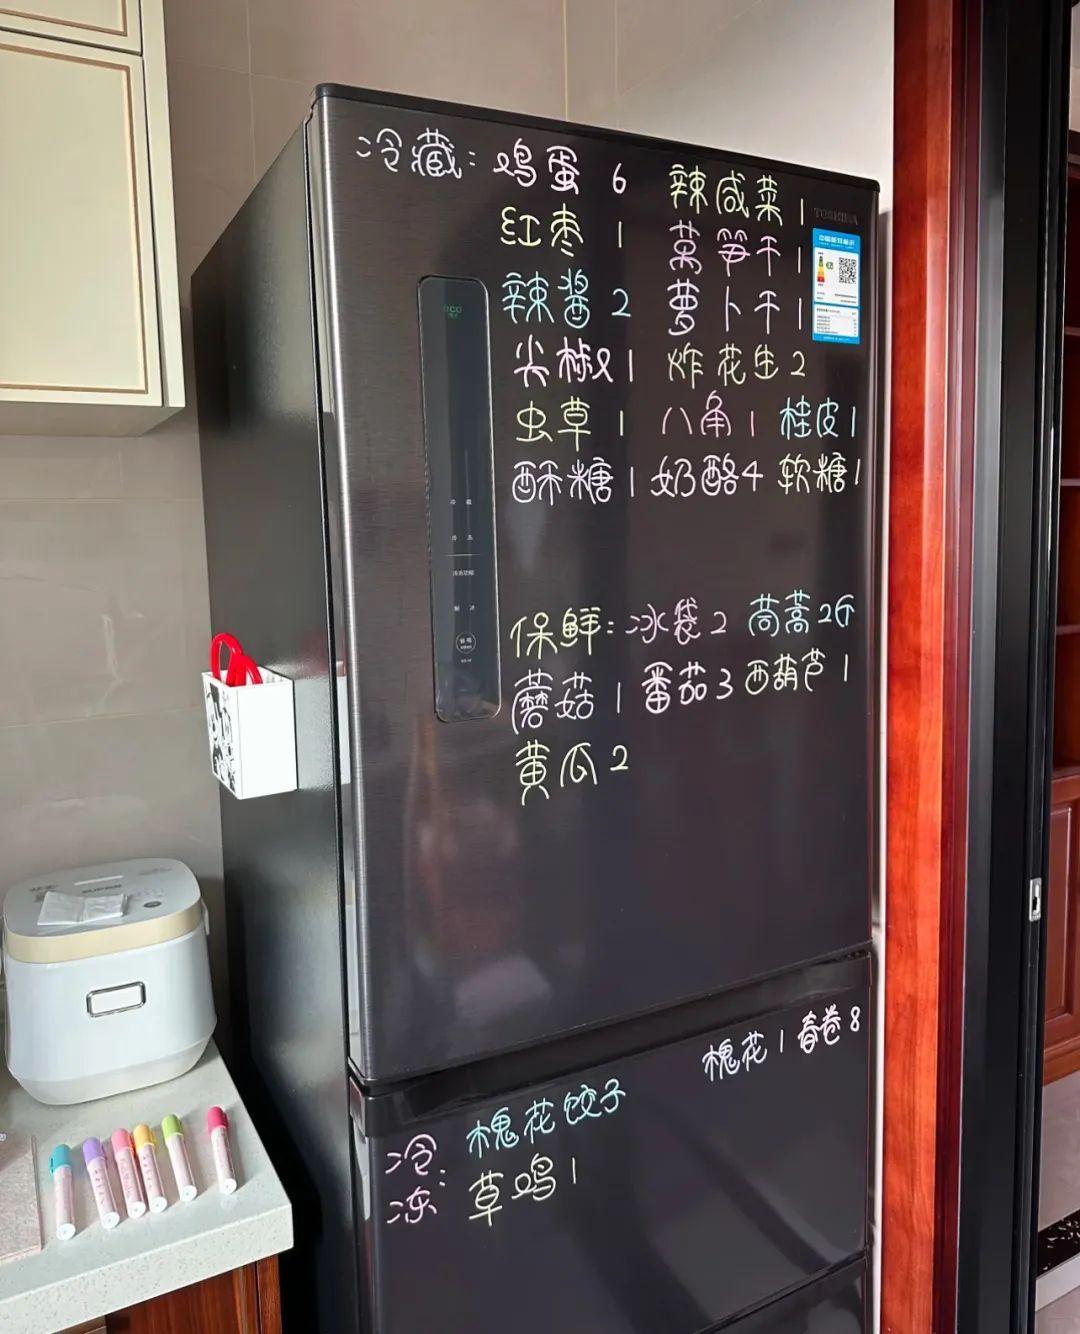 冷藏: 鸡蛋 6 辣咸菜 1
TOSHIBA
红枣 1 莴笋干 1
辣酱 2 萝卜干 1
尖椒 1 炸花生 2
虫草 1 八角 1 桂皮 1
酥糖 1 奶酪 4 软糖 1
保鲜: 冰袋 2 茼蒿 2斤
蘑菇 1 番茄 3 西葫芦 1
黄瓜 2
槐花 1 春卷 8
冷冻: 槐花饺子
草鸡 1
SUPOR